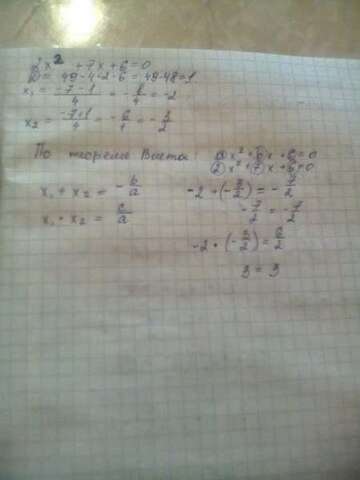 2x² + 7x + 6 = 0
D = 49 - 4·2·6 = 49-48 = 1
x₁ = (-7-1)/4 = -8/4 = -2
x₂ = (-7+1)/4 = -6/4 = -3/2
По теореме Виета: ax² + bx + c = 0
2x² + 7x + 6 = 0
x₁ + x₂ = -b/a
-2 + (-3/2) = -7/2
x₁ · x₂ = c/a
-7/2 = -7/2
-2 · (-3/2) = 6/2
3 = 3